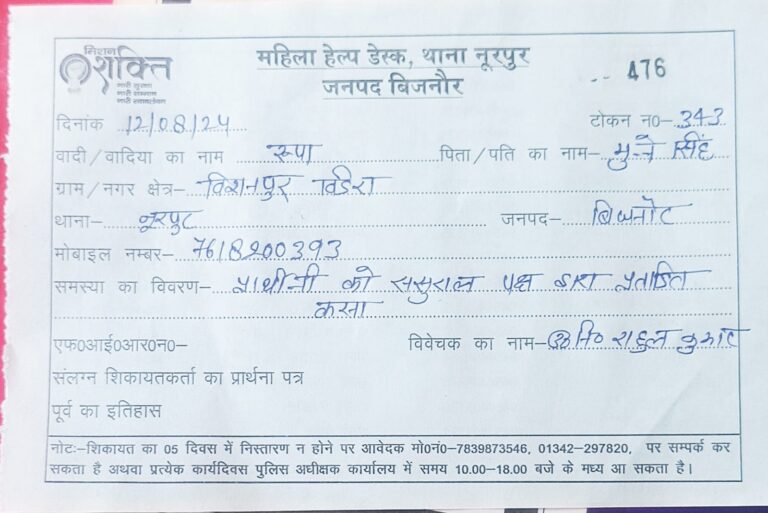 मिशन
शक्ति
नारी सुरक्षा
नारी सम्मान
नारी स्वावलंबन
महिला हेल्प डेस्क, थाना नूरपुर
जनपद बिजनौर
476
दिनांक 12/08/24 टोकन न0- 343
वादी/वादिया का नाम रूपा पिता/पति का नाम- मुन्ने सिंह
ग्राम/नगर क्षेत्र- विशनपुर
थाना- नूरपुर जनपद- बिजनौर
मोबाइल नम्बर- 7618200393
समस्या का विवरण- प्रार्थीनी को ससुराल पक्ष द्वारा प्रताडित
करना
एफ0आई0आर0न0- विवेचक का नाम- उ0नि0 राहुल कुमार
संलग्न शिकायतकर्ता का प्रार्थना पत्र
पूर्व का इतिहास
नोटः-शिकायत का 05 दिवस में निस्तारण न होने पर आवेदक मो0नं0-7839873546, 01342-297820, पर सम्पर्क कर
सकता है अथवा प्रत्येक कार्यदिवस पुलिस अधीक्षक कार्यालय में समय 10.00-18.00 बजे के मध्य आ सकता है।